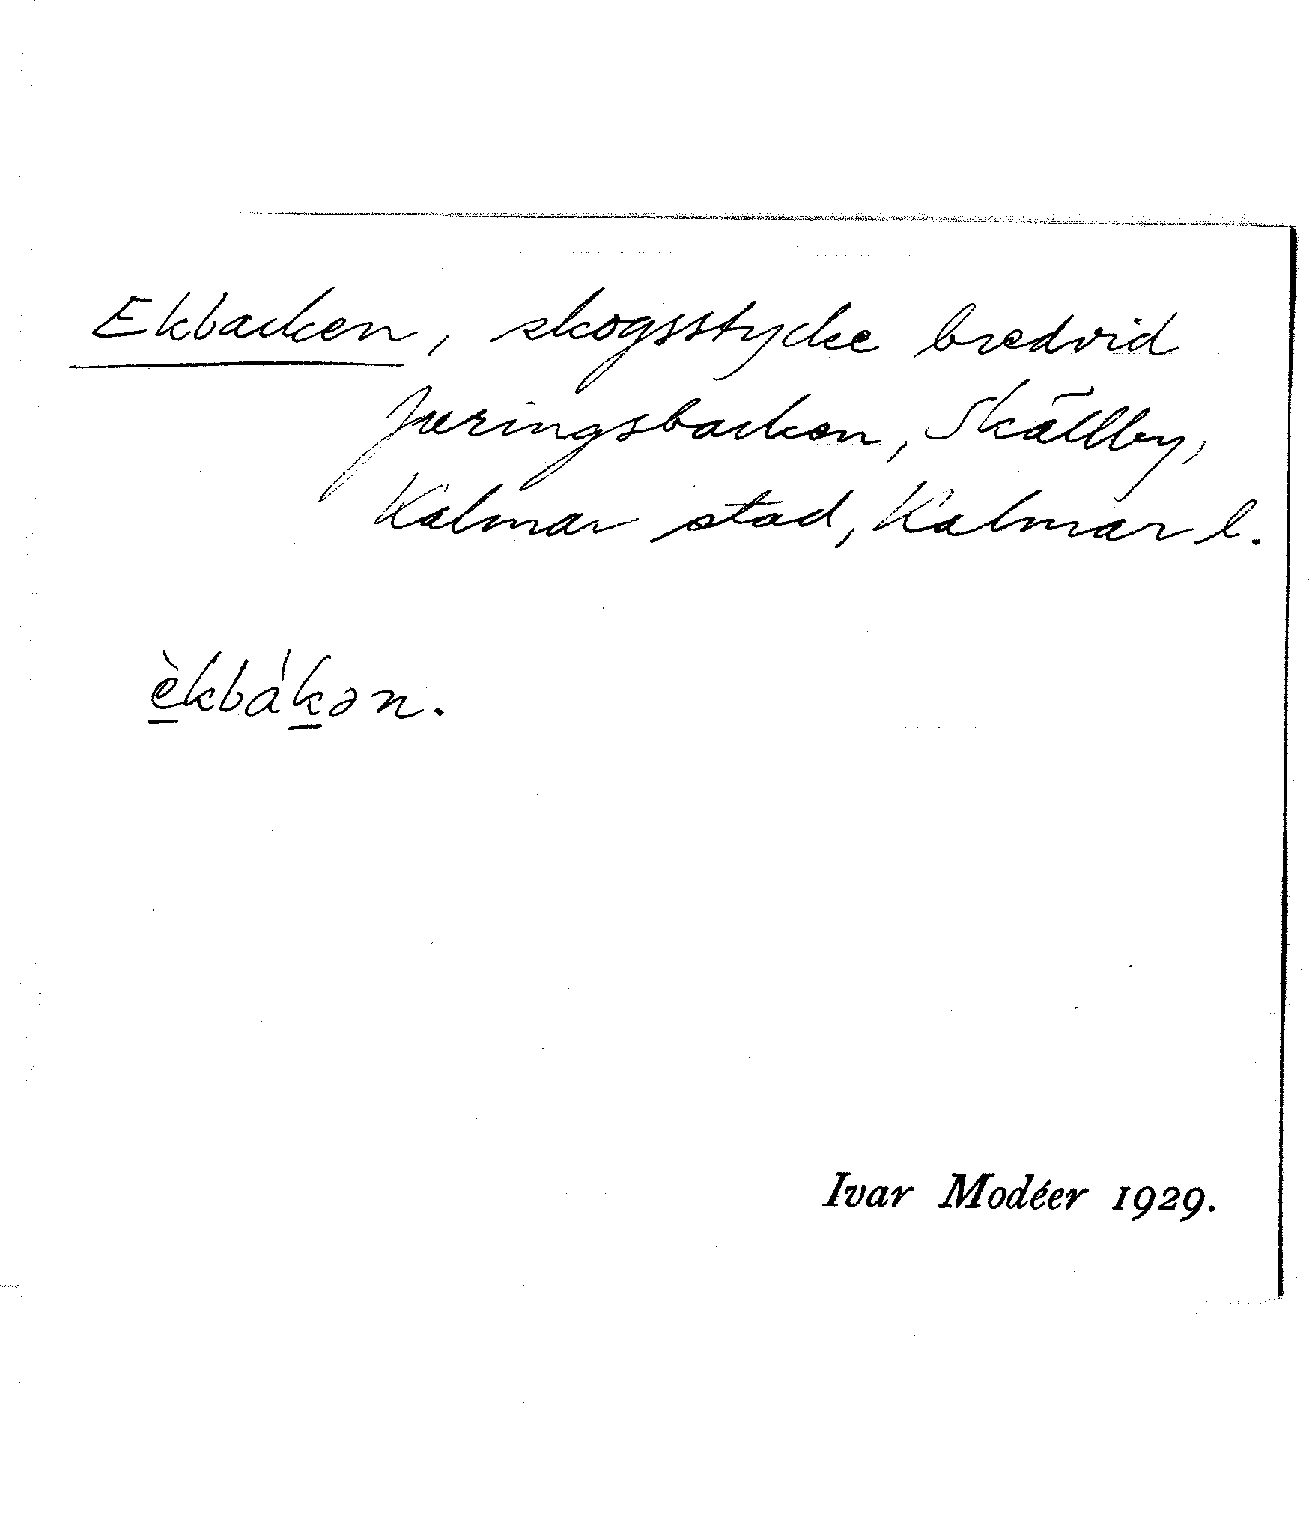 Ekbacken, skogsstycke bredvid
Juringsbacken, Skälby,
Kalmar stad, Kalmar l.
èkbákən.
Ivar Modéer 1929.